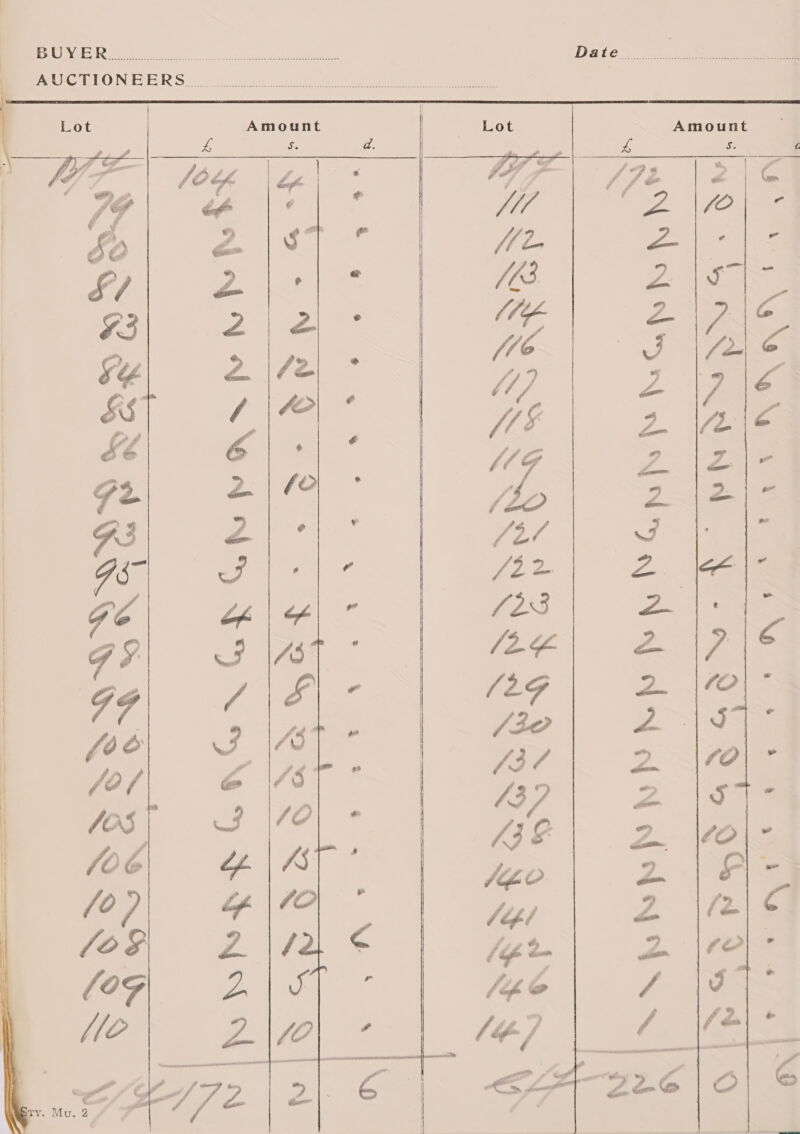 BUYER Date
AUCTIONEERS
Lot Amount Lot Amount
£ s. d. £ s.
B/F 104 4 - B/F 172 2 6
79 4 - - 111 2 10 -
80 2 5 - 112 2 - -
81 2 - - 113 2 5 -
83 2 2 - 114 2 7 6
84 2 12 - 116 3 12 6
85 1 10 - 117 2 7 6
86 6 - - 118 2 12 6
92 2 10 - 119 2 2 -
93 2 - - 120 2 2 -
95 3 - - 121 3 - -
96 4 4 - 122 2 4 -
98 3 15 - 123 2 - -
99 1 8 - 124 2 7 6
100 3 15 - 129 2 10 -
101 6 15 - 130 2 5 -
105 3 10 - 131 2 10 -
106 4 15 - 137 2 5 -
107 4 10 - 138 2 10 -
108 2 12 6 140 2 8 -
109 2 5 - 141 2 12 6
110 2 10 - 142 2 10 -
146 1 5 -
147 1 12 -
C/F 172 2 6 C/F 226 0 6
Sty. Mu. 2